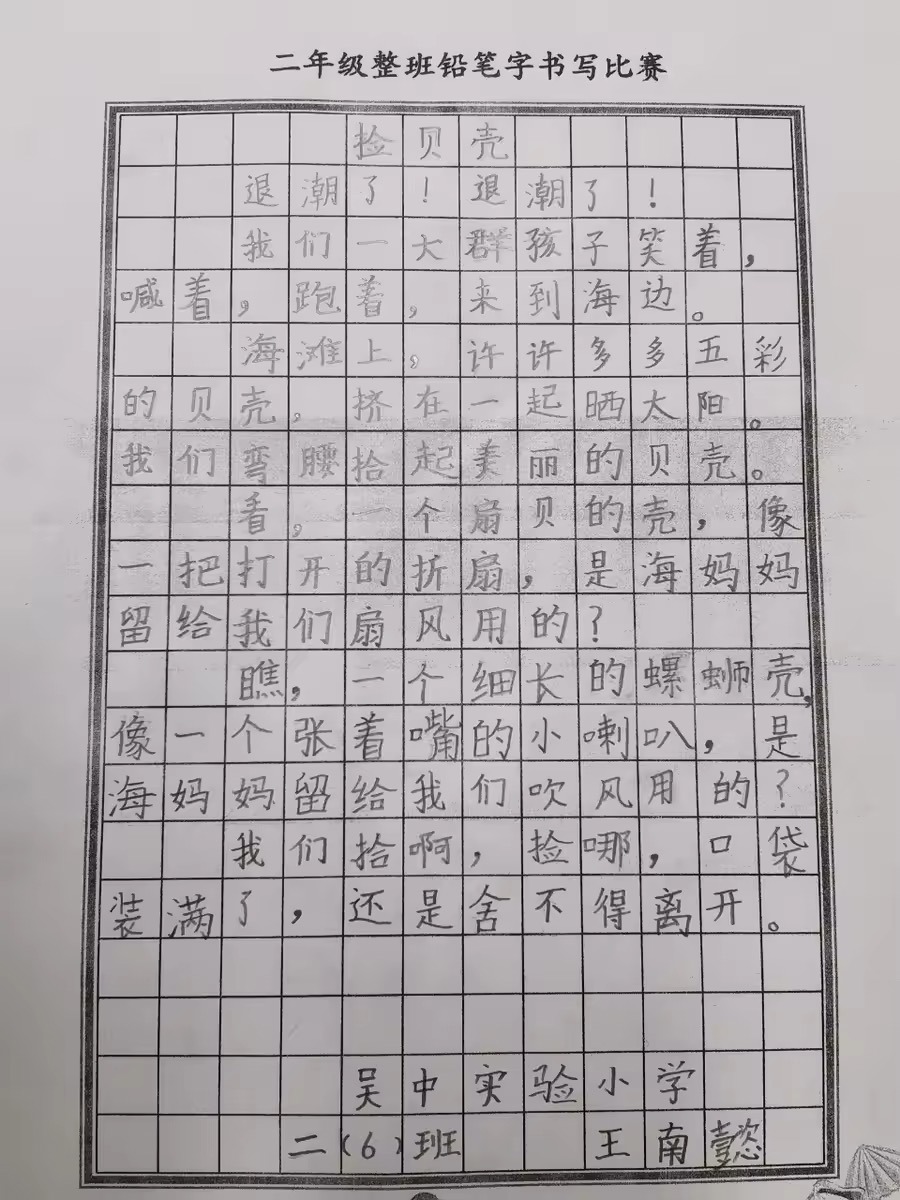 二年级整班铅笔字书写比赛
捡贝壳
退潮了！退潮了！
我们一大群孩子笑着，
喊着，跑着，来到海边。
海滩上，许许多多五彩
的贝壳，挤在一起晒太阳。
我们弯腰拾起美丽的贝壳。
看，一个扇贝的壳，像
一把打开的折扇，是海妈妈
留给我们扇风用的？
瞧，一个细长的螺蛳壳，
像一个张着嘴的小喇叭，是
海妈妈留给我们吹风用的？
我们拾啊，捡哪，口袋
装满了，还是舍不得离开。
吴中实验小学
二（6）班 王南懿